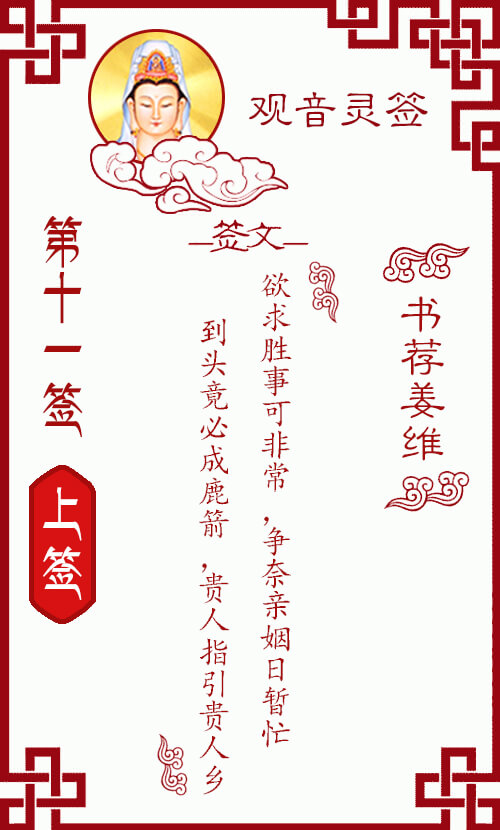 观音灵签
签文
书荐姜维
欲求胜事可非常,争奈亲姻日暂忙
到头竟必成鹿箭,贵人指引贵人乡
第十一签
上签